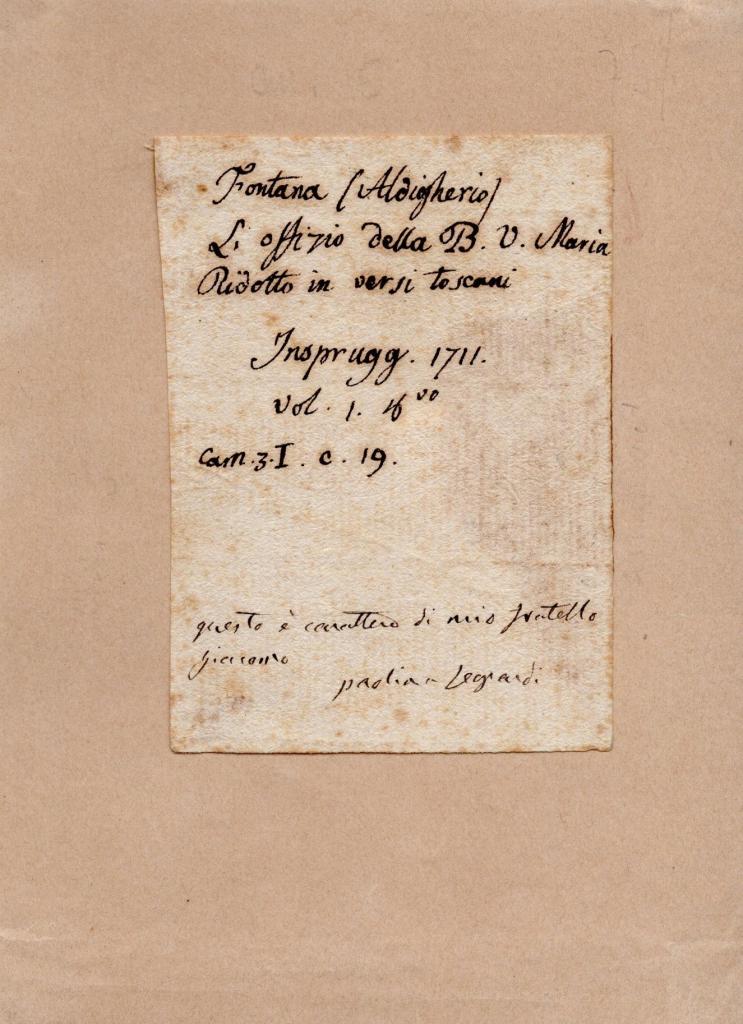 Fontana (Aldigherio)
L'offizio della B. V. Maria
Ridotto in versi toscani
Insprugg. 1711.
vol. 1. 4 vo
Cam. 3. I. c. 19.
questo è carattero di mio fratello
giacomo
paolina Leopardi